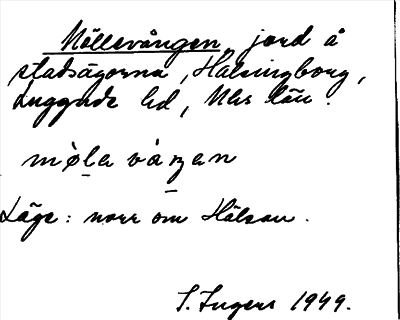 Möllevången, jord å
stadsägorna, Hälsingborg,
Luggude hd, Mlhs län.
mø̀la våŋan
Läge: norr om Hälsan.
S. Ingers 1949.